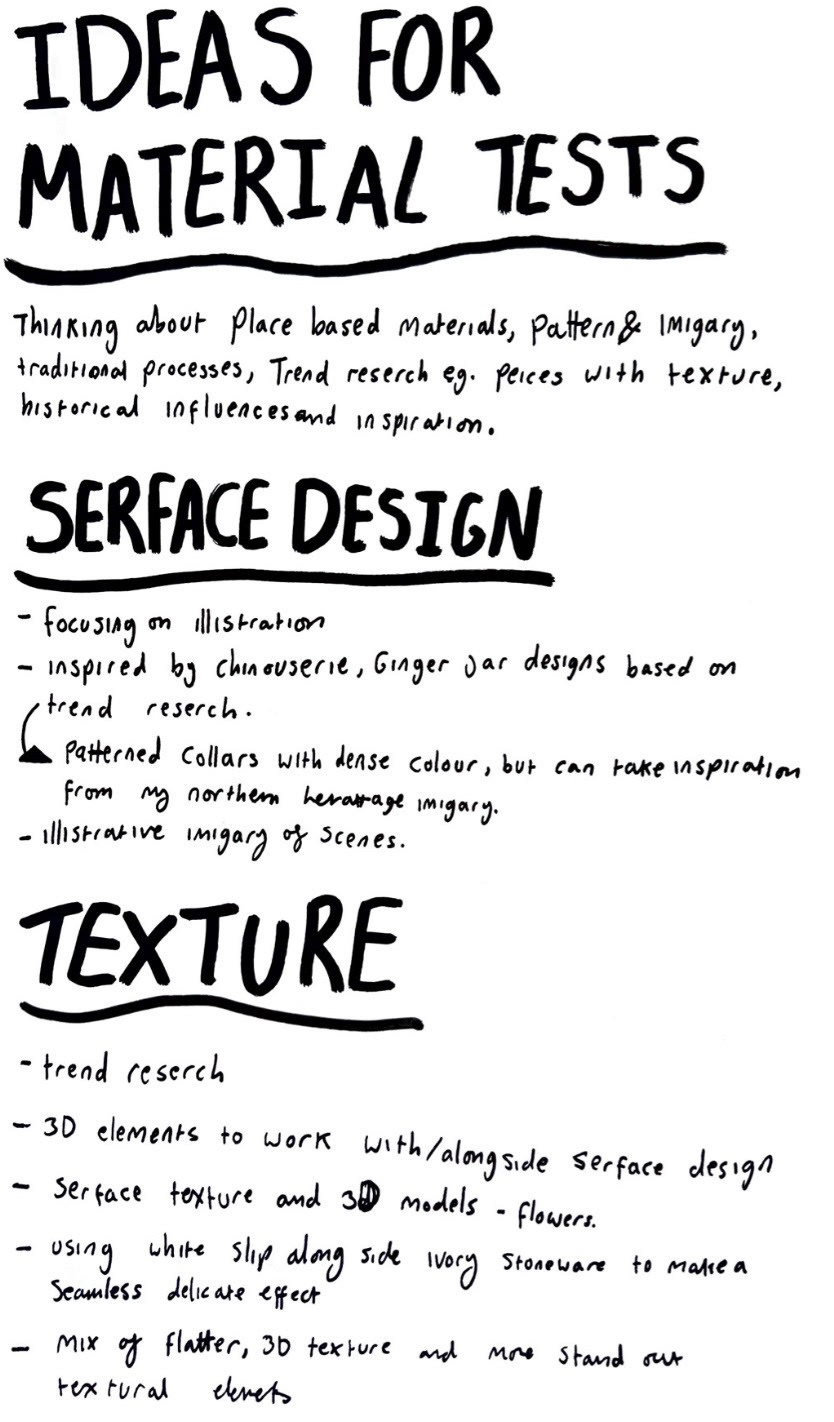 IDEAS FOR
MATERIAL TESTS
Thinking about place based materials, pattern & imigary,
traditional processes, Trend reserch eg. peices with texture,
historical influences and inspiration.
SERFACE DESIGN
- focusing on illistration
- inspired by chinouserie, Ginger Jar designs based on
trend reserch.
Patterned collars with dense colour, but can take inspiration
from my northern herattage imigary.
- illistrative imigary of scenes.
TEXTURE
- trend reserch
- 3D elements to work with/alongside serface design
- serface texture and 3D models - flowers.
- using white slip along side ivory stoneware to make a
seamless delicate effect
- Mix of flatter, 3D texture and more stand out
textural elemets